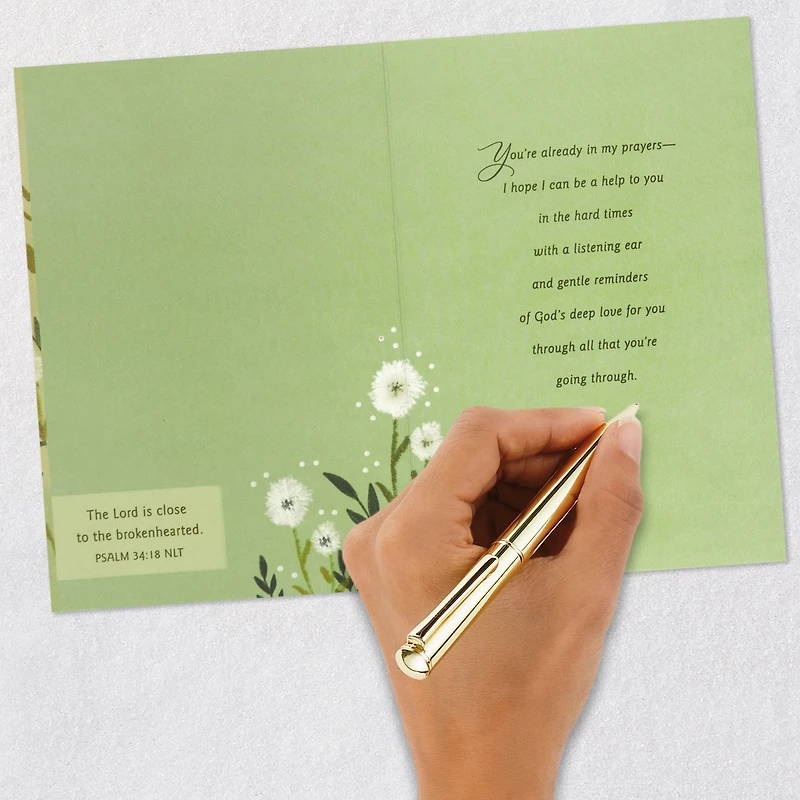 You're already in my prayers—
I hope I can be a help to you
in the hard times
with a listening ear
and gentle reminders
of God's deep love for you
through all that you're
going through.
The Lord is close
to the brokenhearted.
PSALM 34:18 NLT